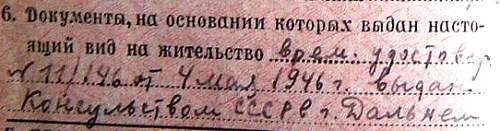 6. Документы, на основании которых выдан насто-
ящий вид на жительство врем. удостовер.
№ 11/146 от 4 мая 1946 г. выдан.
Консульством СССР в г. Дальнем